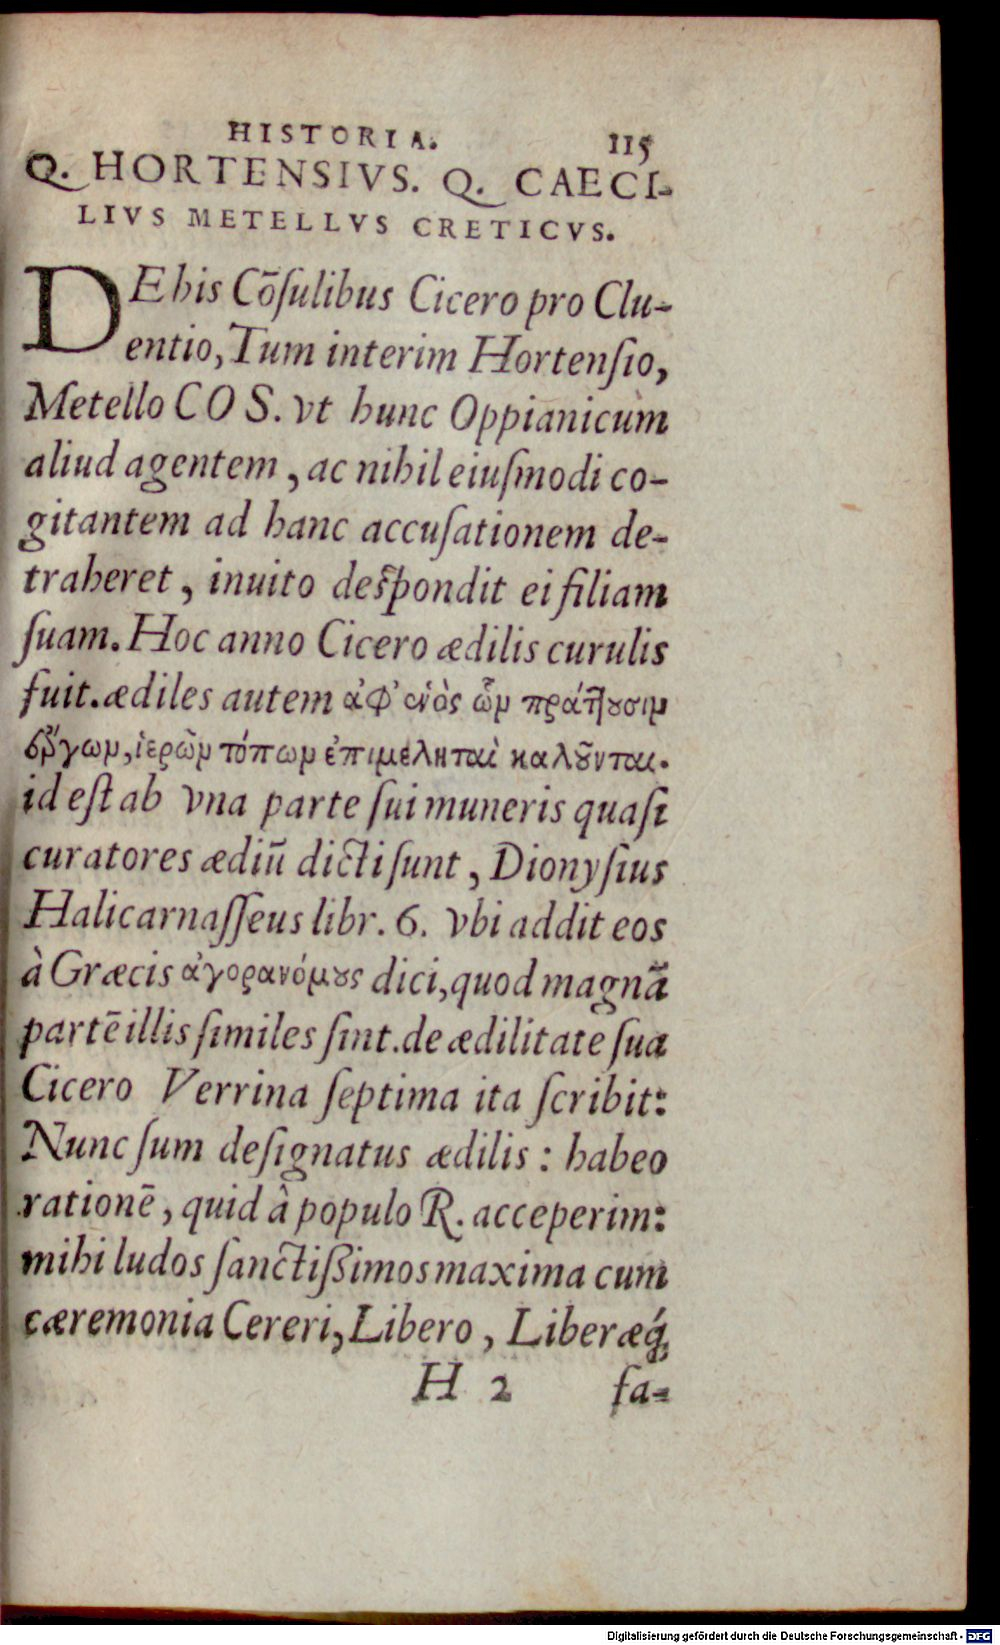 HISTORIA. 115
Q. HORTENSIVS. Q. CAECI-
LIVS METELLVS CRETICVS.
DE his Cōſulibus Cicero pro Clu-
entio, Tum interim Hortenſio,
Metello COS. vt hunc Oppianicum
aliud agentem, ac nihil eiuſmodi co-
gitantem ad hanc accuſationem de-
traheret, inuito deſpondit ei filiam
ſuam. Hoc anno Cicero ædilis curulis
fuit. ædiles autem ἀφ' ἑνὸς ὧν πράττουσιν
ἔργων, ἱερῶν τόπων ἐπιμεληταὶ καλοῦνται.
id eſt ab vna parte ſui muneris quaſi
curatores ædiū dicti ſunt, Dionyſius
Halicarnaſſeus libr. 6. vbi addit eos
à Græcis ἀγορανόμους dici, quod magnā
partē illis ſimiles ſint. de ædilitate ſua
Cicero Verrina ſeptima ita ſcribit:
Nunc ſum deſignatus ædilis: habeo
rationē, quid à populo R. acceperim:
mihi ludos ſanctißimos maxima cum
cæremonia Cereri, Libero, Liberæq́;
H 2 fa-
Digitalisierung gefördert durch die Deutsche Forschungsgemeinschaft - DFG